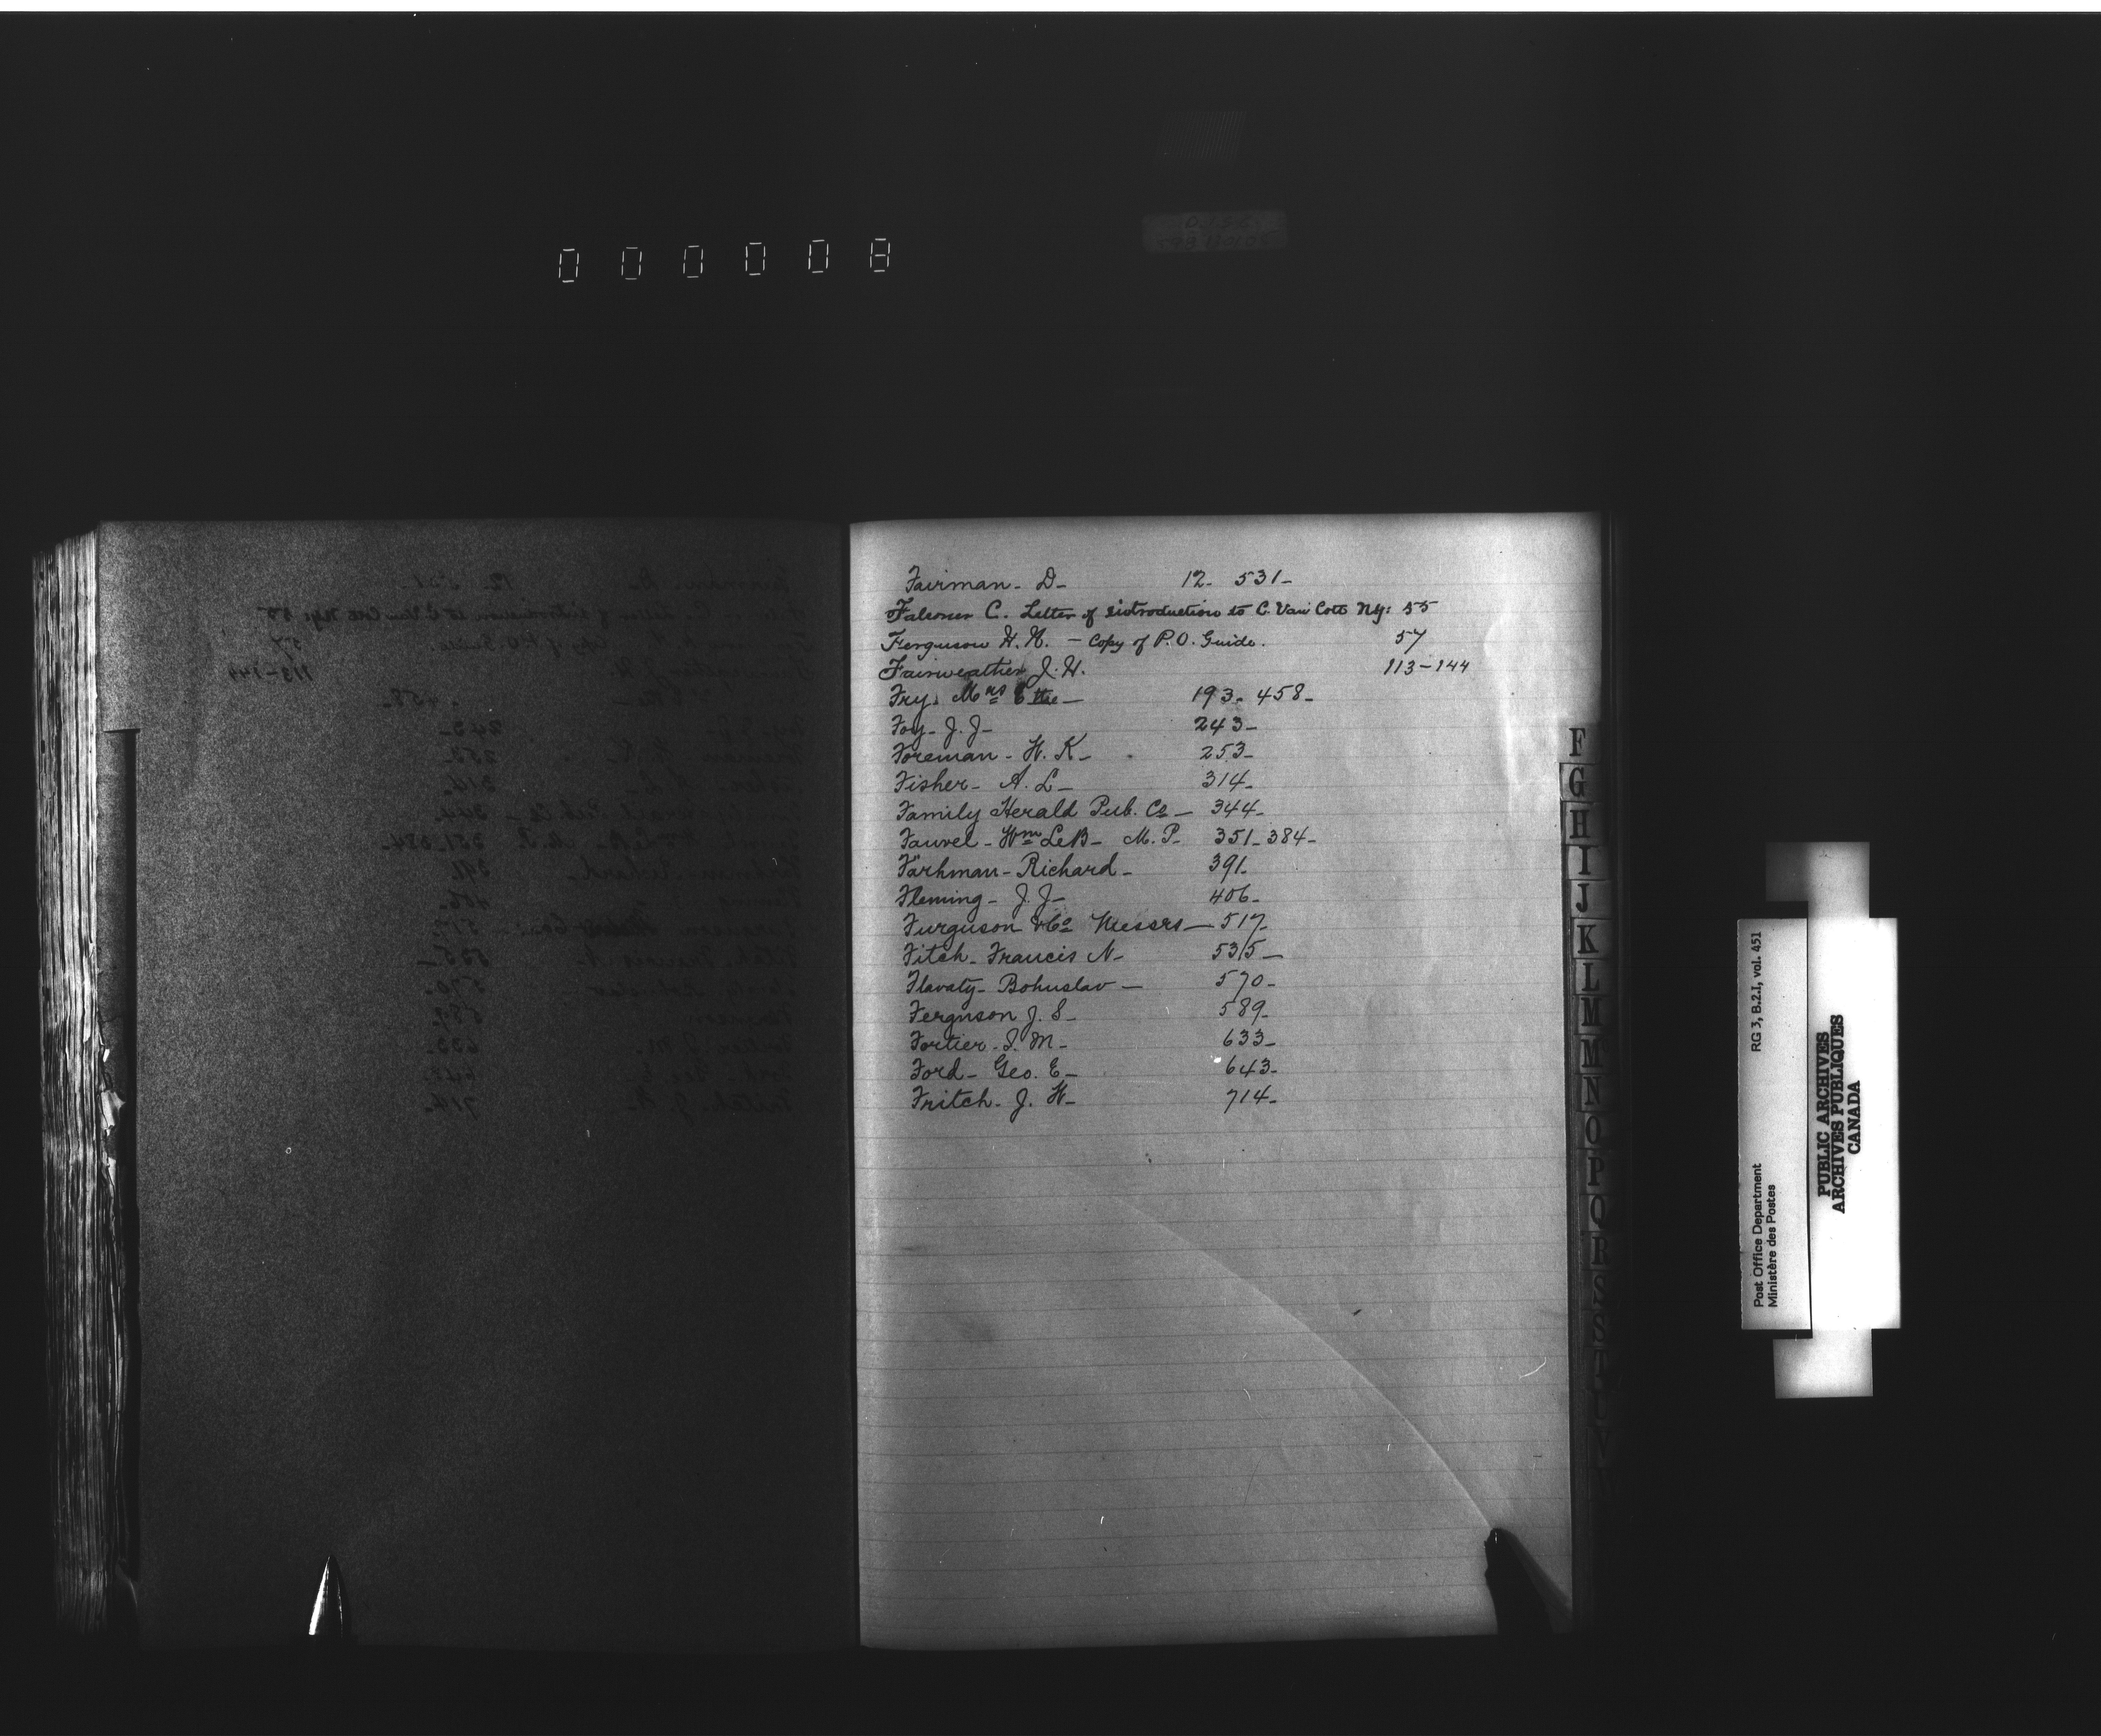 000008
Fairman - D - 12 - 531 -
Falconer C. Letter of introduction to C. Van Cott N.Y: 55
Ferguson H. A. - Copy of P.O. Guide. 57
Fairweather J. H. 113-144
Fry. Mrs 193 - 458 -
Foy - J. J - 243 -
Foreman - W. K - 253 -
Fisher - A. L - 314 -
Family Herald Pub. Co - 344 -
Fauvel - Wm LeB - M. P. 351 - 384 -
Farhman - Richard - 391 -
Fleming - J. J - 406 -
Furguson & Co Messrs - 517 -
Fitch - Francis N - 535 -
Flavaty - Bohuslav - 570 -
Ferguson J. S - 589 -
Fortier - S. M - 633 -
Ford - Geo. E - 643 -
Fritch - J. W - 714 -
F
G
H
I
J
K
L
M
M
N
O
P
Q
R
S
S
T
V
RG 3, B.2.I, vol. 451
Post Office Department
Ministère des Postes
PUBLIC ARCHIVES
ARCHIVES PUBLIQUES
CANADA